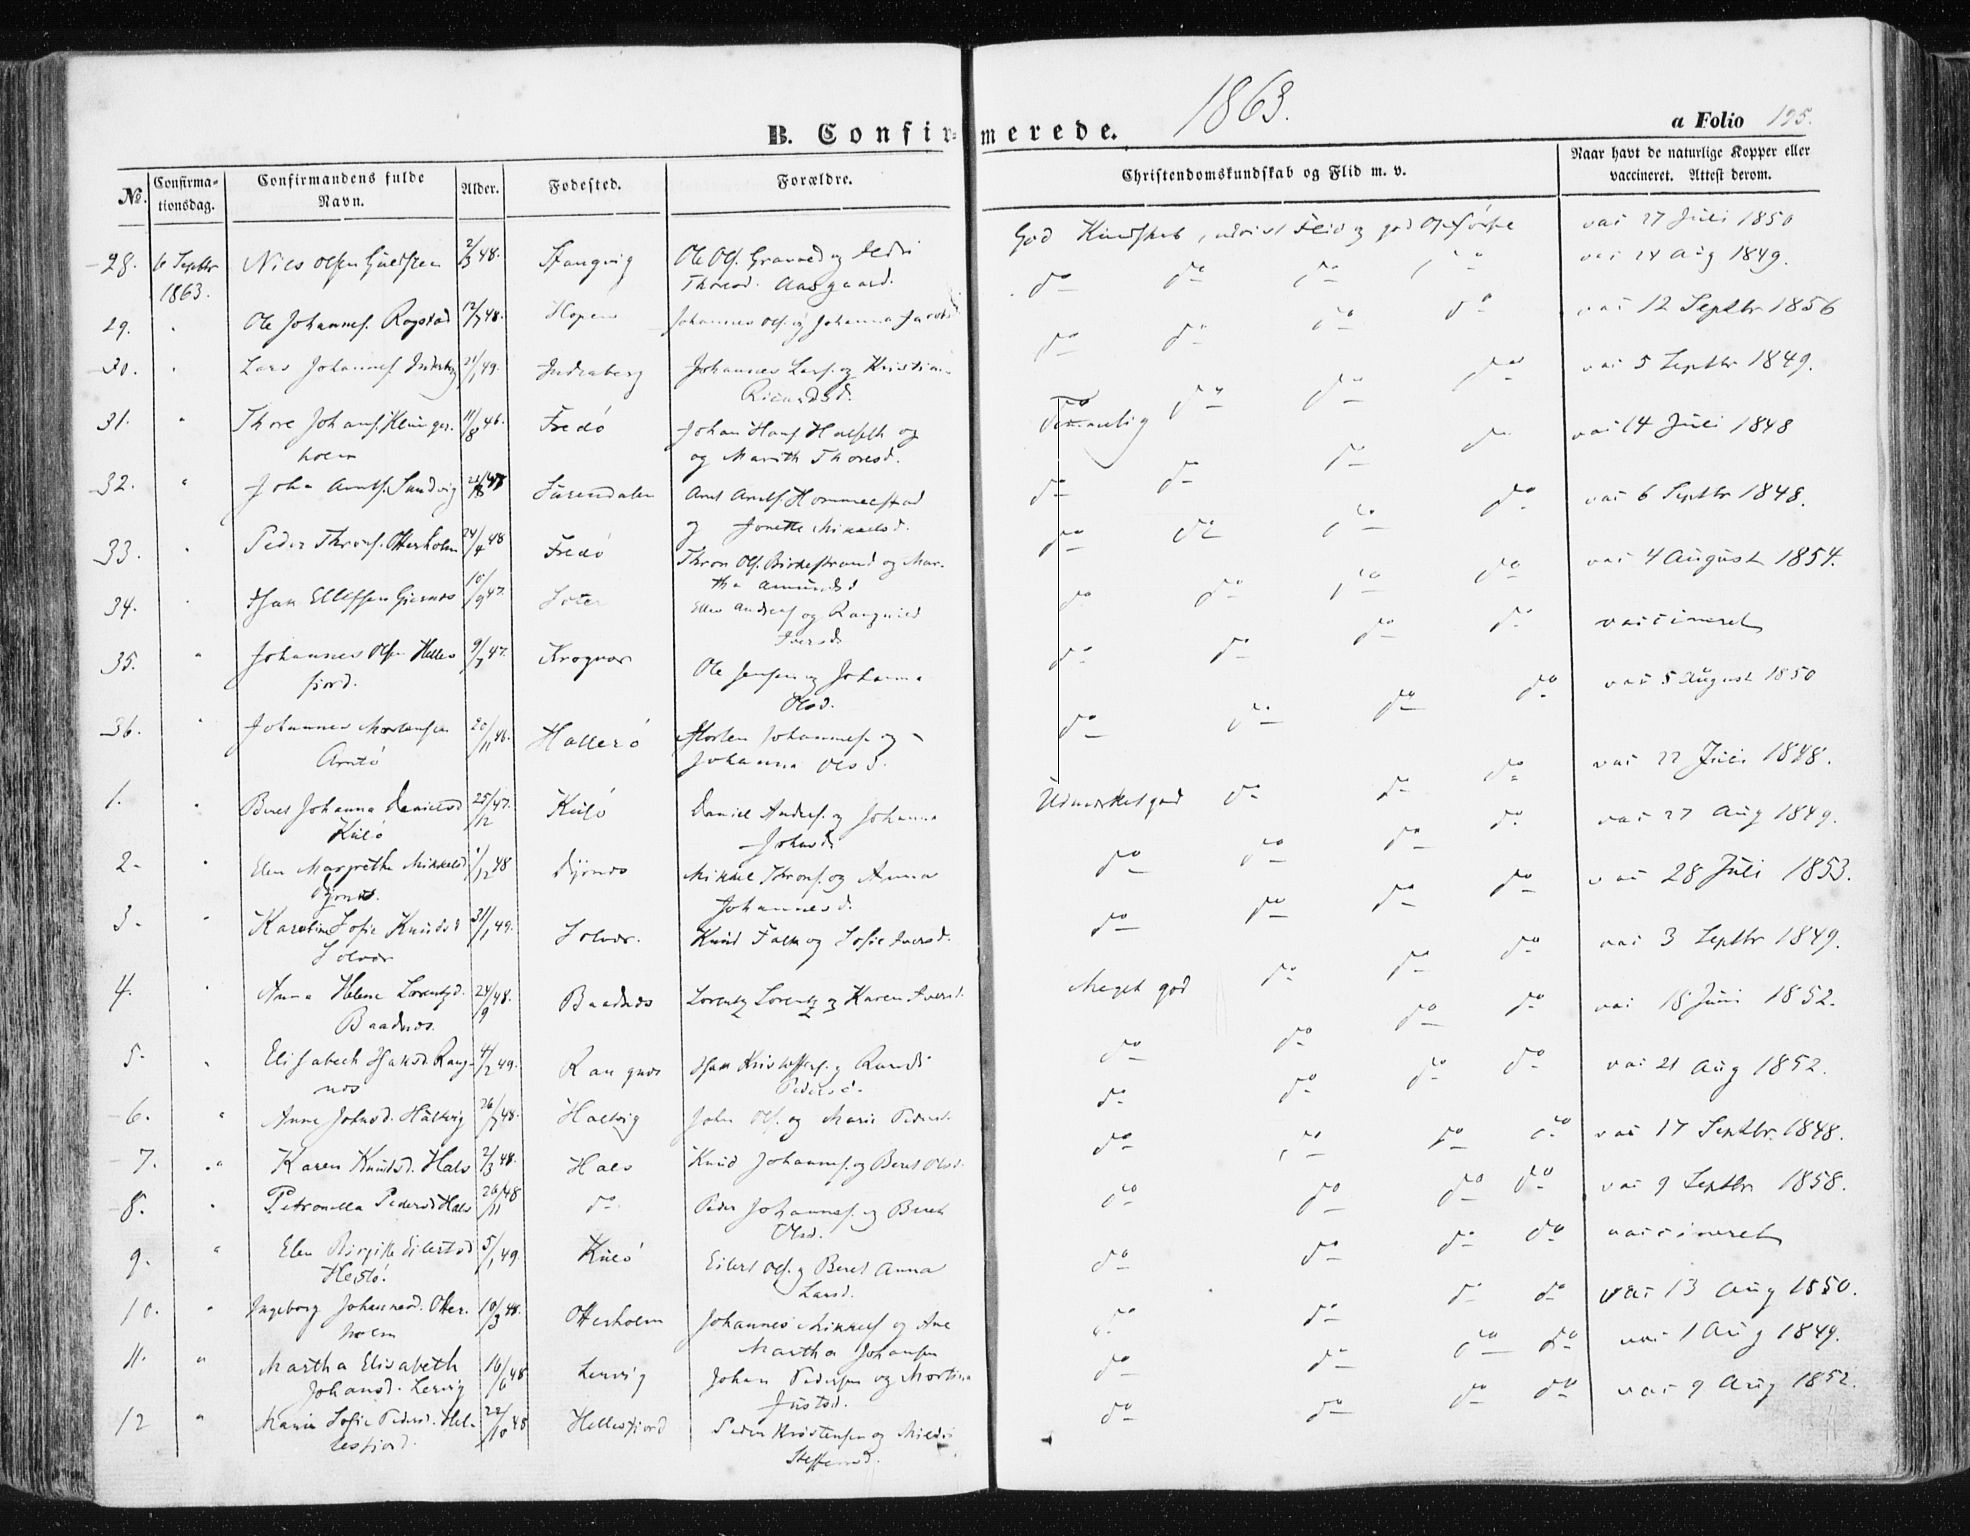 1863.
B. Confirmerede.
a Folio 195.
No. Confirmationsdag. Confirmandens fulde Navn. Alder. Fødested. Forældre. Christendomskundskab og Flid m. v. Naar havt de naturlige Kopper eller vaccineret. Attest derom.
28. 6 Septbr 1863. Nies Olsen 2/3 48. Stangvig Ole Ols. og Thoresd. Aasgaard. God Kundskab, udvist Flid og god Opførsel vac 27 Juli 1850
29. " Ole Johannes. Rogstad 12/7 48. Hopen Johannes Ols. og Johanna do do do do vac 24 Aug 1849.
30. " Lars Johannes. 21/1 49. Inderberg Johannes Lars. og Kristian Ricardsd. do do do do vac 12 Septbr 1856
31. " Thore Johans. Klingerholm 11/8 46. Fredø Johan Hans. Halseth og og Marith Thoresd. Temmelig do do do vac 5 Septbr 1849.
32. " John Arnts. Sandvig Surendalen Arnt Arnts. Hommelstad og Jonette Mikkelsd. do do do do vac 14 Juli 1848
33. " Peder Throns. Otterholm 24/4 48 Fredø Thron Ols. Birkestrand og Martha Amundsd do do do do vac 6 Septbr 1848.
34. " Isak Ellefsen 10/9 47. Ellev Andreas. og Rangnild Iversd. do do do do vac 4 August 1854.
35. " Johannes Olsen Hellesfjord. 9/7 47. Krogvar Ole Jensen og Johanna Olsd. do do do do vaccineret
36. " Johannes Mortensen Arntø 20/11 46. Hallerø Morten Johannes. og Johanna Olsd. do do do do vac 5 August 1850
1. " Beret Johanna Danielsd Kulø 25/12 47. Kulø Daniel Andreas. og Johanna Johnsd. Udmærket god do do do vac 22 Juli 1848.
2. " Elen Margrethe Mikkelsd. Dyrnæs. 1/12 48 Dyrnæs Mikkel Throns. og Anna Johannesd. do do do do vac 27 Aug 1849.
3. " Karoline Sofie Knudsd Solvær 31/1 49. Solvær. Knud Falk og Sofie Iversd. do do do do vac 28 Juli 1853.
4. " Anna Helene Lorentzd. Baadnæs. 24/9 48. Baadnæs Lorentz Lorentz. og Karen Iversd. Meget god do do do vac 3 Septbr 1849.
5. " Elisabeth Isaksd. Rangnæs 4/2 49. Rangnæs Isak Kristoffers. og Randi Pedersd. do do do do vac 18 Juni 1852.
6. " Anne Johnsd. Haltvig 26/7 48. Haltvig John Ols. og Marie Pedersd. do do do do vac 21 Aug 1852.
7. " Karen Knudsd. Hals 2/3 48. Hals Knud Johannes. og Beret Olsd. do do do do vac 17 Septbr. 1848.
8. " Petronella Pedersd Hals 26/11 48 do Peder Johannes. og Beret Olsd. do do do do vac 9 Septbr 1858.
9. " Elen Birgitte Eilertsd Hestø. 5/1 49. Kulø Eilert Ols. og Beret Anna Larsd. do do do do vaccineret
10. " Ingeborg Johannesd. Otterholm 10/3 48. Otterholm Johannes Mikkels. og Ane Martha Johansen do do do do vac 13 Aug 1850.
11. " Martha Elisabeth Johansd. Lervig 16/6 48 Lervig Johan Pedersen og Mortina Justsd. do do do do vac 1 Aug 1849.
12 " Marie Sofie Pedersd. Hellesfjord. 22/10 48 Hellesfjord Peder Kristensen og Steffensd. do do do do vac 9 Aug 1852.